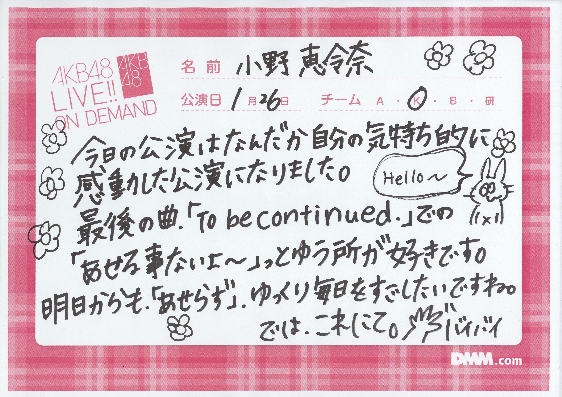 AKB48
LIVE!!
ON DEMAND
AKB
48
名前 小野恵令奈
公演日 1月26日 チーム A・K・B・研
今日の公演はなんだか自分の気持ち的に
感動した公演になりました。
Hello〜
最後の曲.「To be continued.」での
「あせる事ないよ〜」っとゆう所が好きです。
明日からも.「あせらず」.ゆっくり毎日をすごしたいですね。
では.これにて。バイバイ
DMM.com